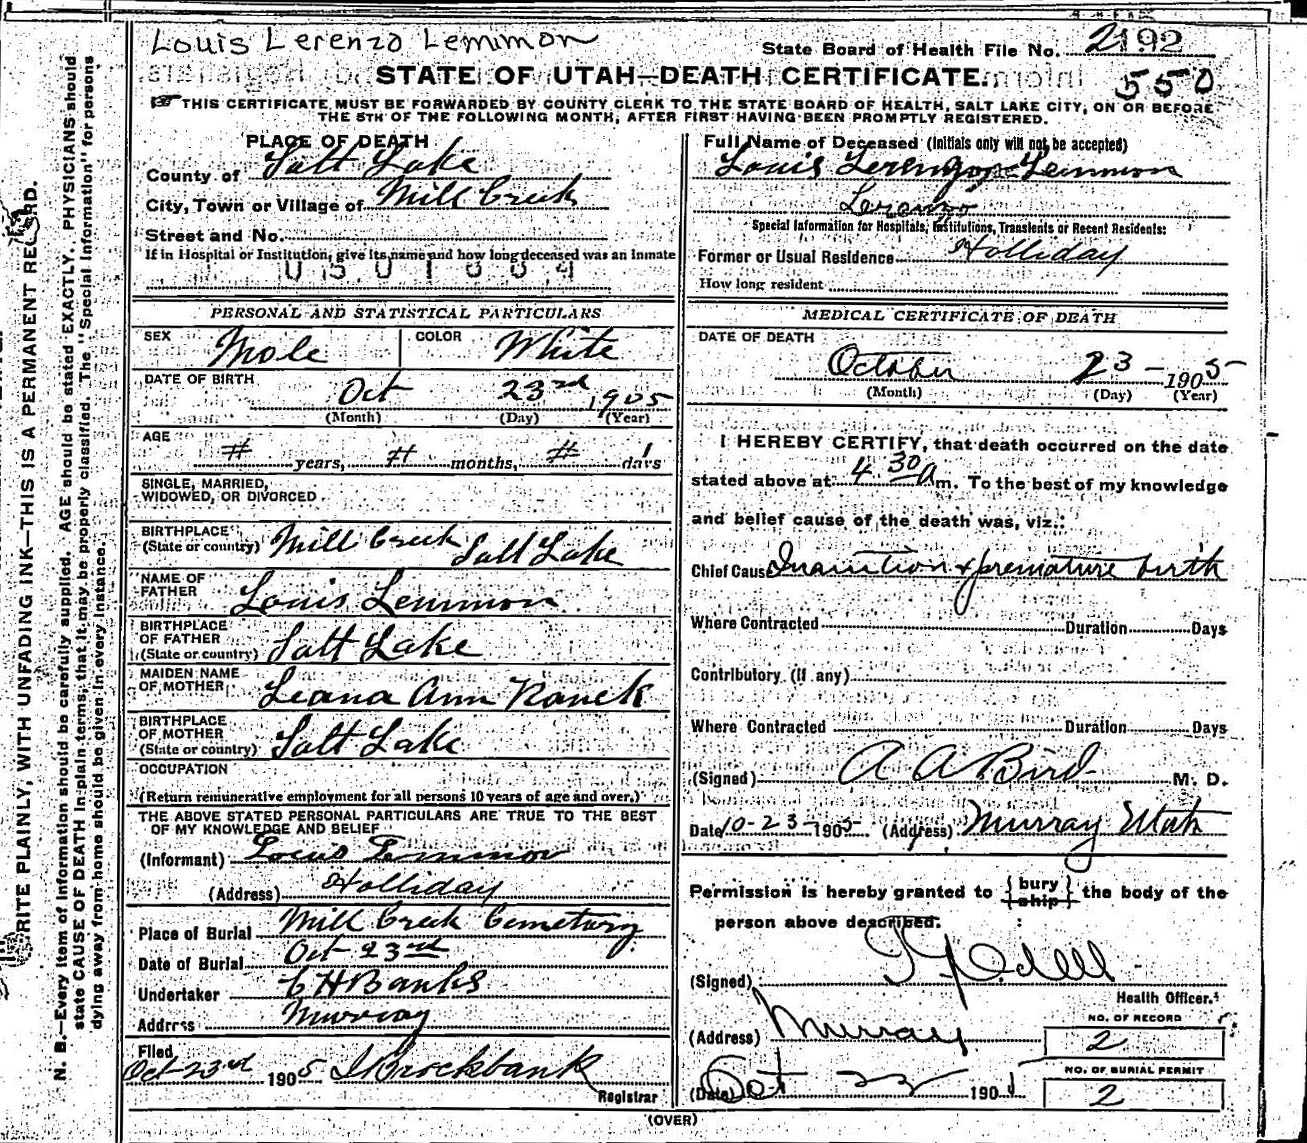 Louis Lerenzo Lemmon
State Board of Health File No. 2192
550
STATE OF UTAH—DEATH CERTIFICATE.
THIS CERTIFICATE MUST BE FORWARDED BY COUNTY CLERK TO THE STATE BOARD OF HEALTH, SALT LAKE CITY, ON OR BEFORE
THE 5TH OF THE FOLLOWING MONTH, AFTER FIRST HAVING BEEN PROMPTLY REGISTERED.
PLACE OF DEATH
County of Salt Lake
City, Town or Village of Mill Creek
Street and No.
If in Hospital or Institution, give its name and how long deceased was an inmate
Full Name of Deceased (Initials only will not be accepted)
Louis Lemmon
Lerenzo
Special Information for Hospitals, Institutions, Transients or Recent Residents:
Former or Usual Residence Holliday
How long resident
PERSONAL AND STATISTICAL PARTICULARS
SEX Male COLOR White
DATE OF BIRTH Oct 23rd 1905
(Month) (Day) (Year)
AGE # years, # months, # 1 days
SINGLE, MARRIED,
WIDOWED, OR DIVORCED
BIRTHPLACE
(State or country) Mill Creek Salt Lake
NAME OF
FATHER Louis Lemmon
BIRTHPLACE
OF FATHER
(State or country) Salt Lake
MAIDEN NAME
OF MOTHER Leana Ann Ranck
BIRTHPLACE
OF MOTHER
(State or country) Salt Lake
OCCUPATION
(Return remunerative employment for all persons 10 years of age and over.)
THE ABOVE STATED PERSONAL PARTICULARS ARE TRUE TO THE BEST
OF MY KNOWLEDGE AND BELIEF
(Informant) Louis Lemmon
(Address) Holliday
Place of Burial Mill Creek Cemetary
Date of Burial Oct 23rd
Undertaker C H Banks
Address Murray
Filed
Oct 23rd 1905
Registrar
MEDICAL CERTIFICATE OF DEATH
DATE OF DEATH
October 23 - 1905
(Month) (Day) (Year)
I HEREBY CERTIFY, that death occurred on the date
stated above at 4 30 A m. To the best of my knowledge
and belief cause of the death was, viz.:
Chief Cause Inanition & premature birth
Where Contracted Duration Days
Contributory (If any)
Where Contracted Duration Days
(Signed) A A Bird M. D.
Date 10-23-1905 (Address) Murray Utah
Permission is hereby granted to {bury ship} the body of the
person above described.
(Signed)
Health Officer.
(Address) Murray
NO. OF RECORD
2
(Date) Oct 23 1905
NO. OF BURIAL PERMIT
2
(OVER)
WRITE PLAINLY, WITH UNFADING INK—THIS IS A PERMANENT RECORD.
N. B.—Every item of information should be carefully supplied. AGE should be stated EXACTLY. PHYSICIANS should
state CAUSE OF DEATH in plain terms, that it may be properly classified. The "Special Information" for persons
dying away from home should be given in every instance.